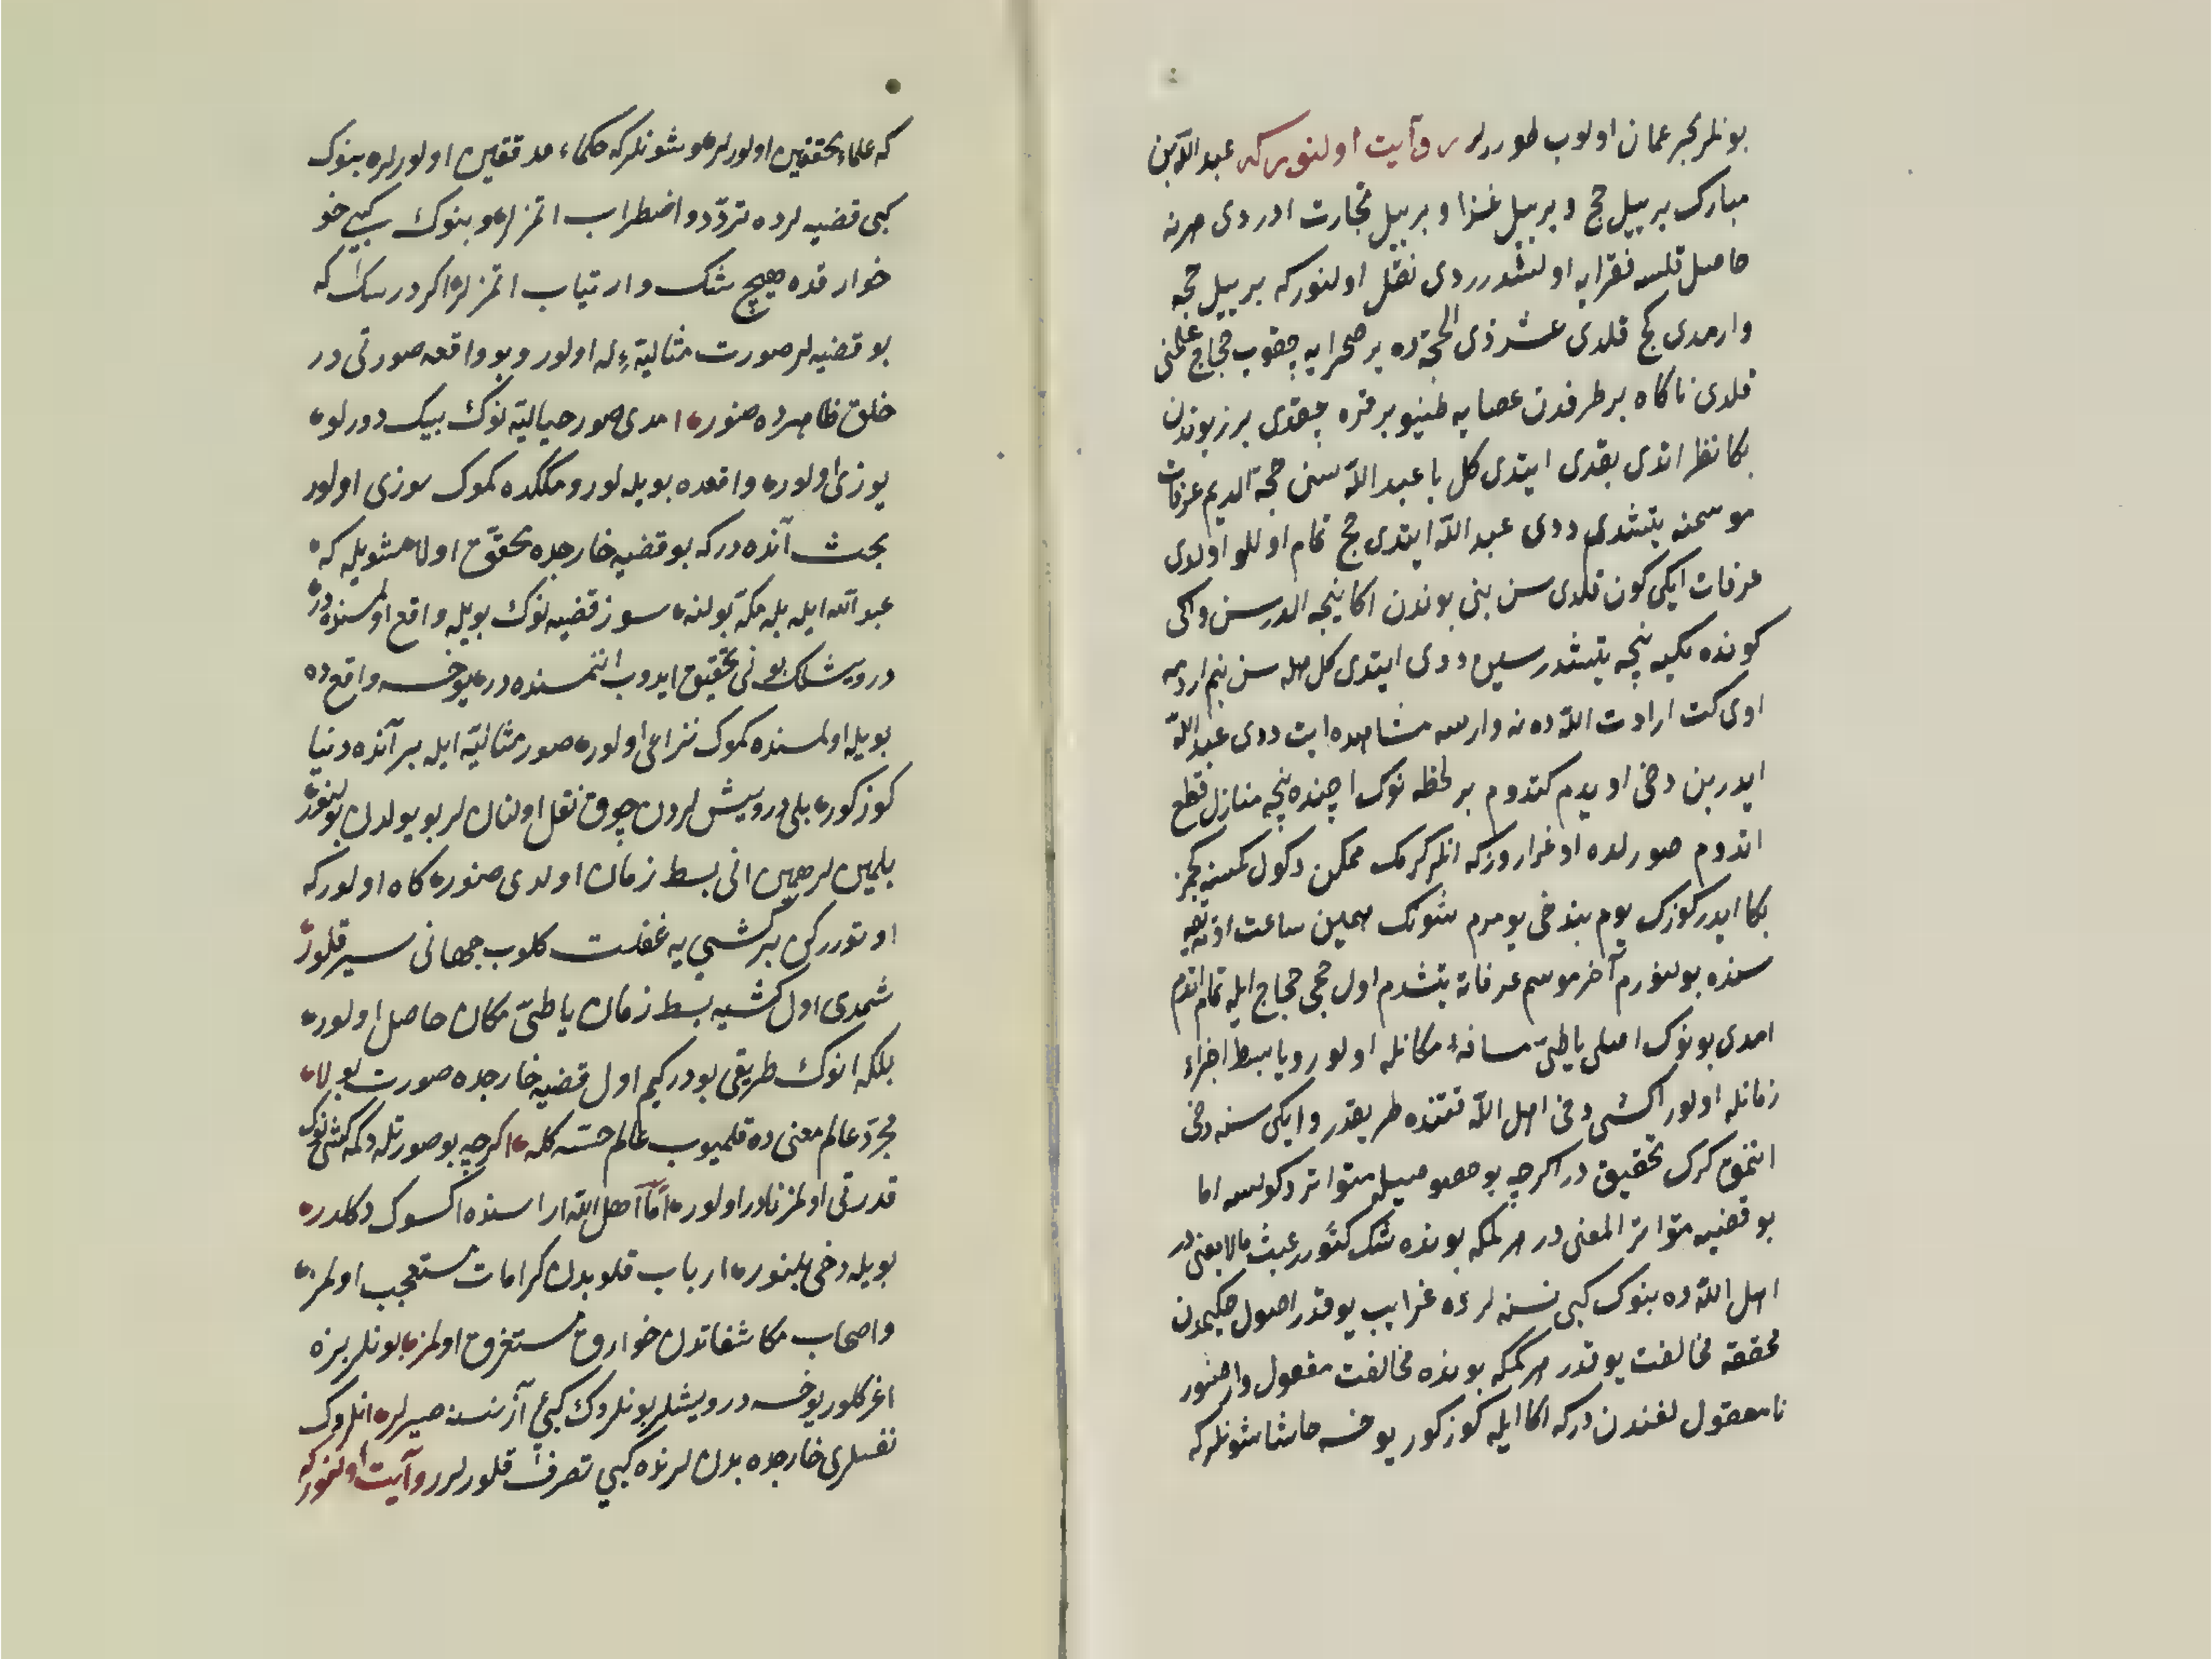 بونلر بحر عمان اولوب طوررلر روآيت اولنور كه عبد الله بن
مبارك بر ييل حج و بر ييل غزا و بر ييل تجارت ادردى هرنه
حاصل قلسه فقرايه اولشدرردى نقل اولنور كه بر ييل حجه
وارمدى كج قلدى عشر ذى الحجه ده بر صحرايه چقوب حجاج علمنى
قلدى ناكاه بر طرفدن عصايه طينو بر قره چقدى برز بوندن
بكا نظر اتدى بقدى ايتدى كل يا عبد الله سنى حجه الديم عرفات
موسمنه يتشدى ددى عبد الله ايتدى حج تمام اوللو اولدى
عرفات ايكى كون قلدى سن بنى بوندن اكا نيجه الدرسن و اكى
كونده مكيه نيجه يتشدرسين ددى ايتدى كل هله سن بنم اردمه
اوى كت ارادت الله ده نه وارسه مشاهده ايت ددى عبد الله
ايدر بن دخى اويدم كتدوم بر لحظه نوك اچنده نيجه منازل قطع
اتدوم صورلده اوغراروز كه انلر كرمك ممكن دكول كمسنه كچمز
بكا ايدر كوزك يوم بندخى يومرم شونك همين ساعت اوته يقه
سنده بولنورم آخر موسم عرفاته يتشدم اول حجى حجاج ايله تمام اتدم
امدى بونوك اصلى يا طىّ مسافهٔ مكانله اولور و يا بسط اجزاء
زمانله اولور اكشى دخى اهل الله قتنده طريقدر و ايكى سنه دخى
اتمق كرك تحقيق در اكرچه بو خصوصيله متواتر دكولسه اما
بو قضيه متواتر المعنى در هر كمكه بونده شك كتورر عبث مالا يعنى در
اهل الله ده بنوك كبى نسنه لر ده غرايب يوقدر اصول حكيمدن
محققه مخالفت يوقدر هر كمكه بونده مخالفت مفعول وار صنور
نامعقول لغندن در كه اكا ايله كوزكور يوخسه حاشا شونلر كه
كه علماء محققين اولورلر و شونلر كه حكماء مدققين اولورلر بنوك
كبى قضيه لرده تردّد و اضطراب اتمزلر و بنوك كيبى خو
خوارقده هيچ شك و ارتياب اتمزلر اكر درسك كه
بو قضيه لر صورت مثاليّه ءِله اولور و بو واقعه صورتى در
خلق ظاهرده صنور امدى صور حياليّه نوك بيك دورلو
يوزى اولور واقعده بويله لور و مكده كموك سوزى اولور
بحث آنده در كه بو قضيه خارجده تحقّق اولا شويله كه
عبد الله ايله بله مكّه بولنه سوز قضيه نوك بويله واقع اولمسنده در
درويشك بونى تحقيق ايدوب اتمسنده در يوخسه واقع ده
بويله اولمسنده كموك نزاعى اولور صور مثاليّه ايله بر آنده دنيا
كوزكور بلى درويش لردن چوق نقل اولنان لر بو يولدن بولنور
بلمين لر همين انى بسط زمان اولدى صنور كاه اولور كه
اوتورركن بر كشى يه غفلت كلوب جهانى سير قلور
شمدى اول كشيه بسط زمان يا طىّ مكان حاصل اولور
بلكه انوك طريقى بودر كيم اول قضيه خارجده صورت بولا
مجرّد عالم معنى ده قلميوب عالم حسّه كله اكرچه بو صورتله دكمه كشى نوك
قدرتى اولمز نادر اولور امّا اهل الله اراسنده اكسوك دكلدر
بويله دخى بلنور ارباب قلوبدن كرامات مستعجب اولمز
و اصحاب مكاشفاتدن خوارق مستغرق اولمز بونلر بزه
اغر كلور يوخسه درويشلر بونلروك كبى آز نسنه صيرلر انلروك
نفسلرى خارجده بدن لرنده كيبى تصرف قلورلر روآيت اولنور كه